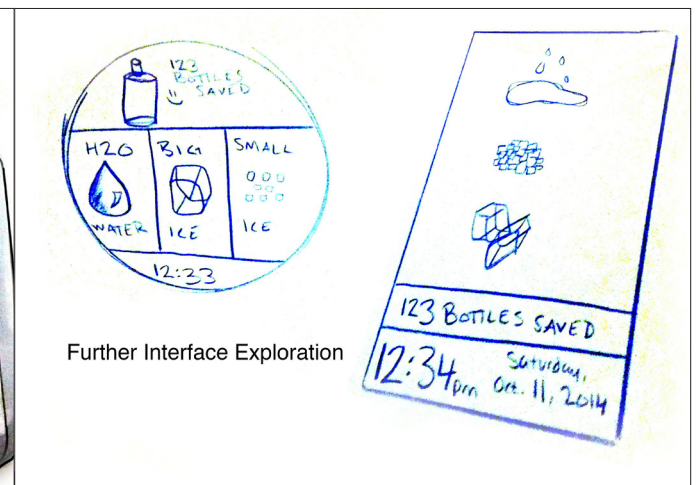 123
BOTTLES
SAVED
H2O
WATER
BIG
ICE
SMALL
ICE
12:33
Further Interface Exploration
123 BOTTLES SAVED
12:34pm
Saturday,
Oct. 11, 2014